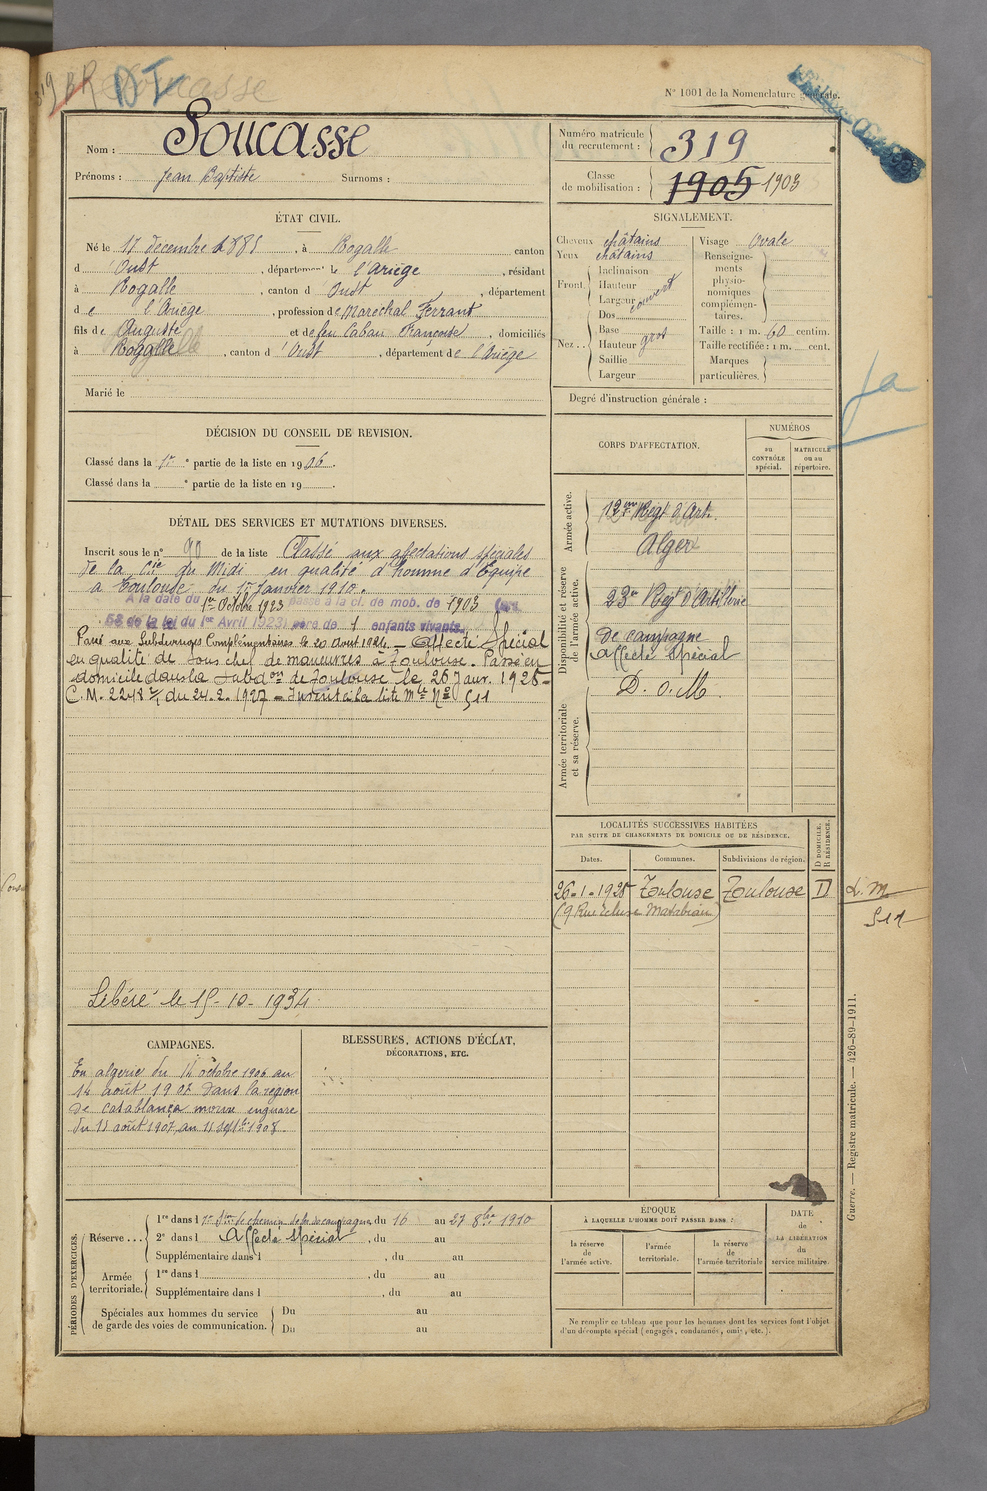 319 BR DI Soucasse
N° 1001 de la Nomenclature générale.
Nom : Soucasse
Prénoms : Jean Baptiste Surnoms :
Numéro matricule du recrutement : 319
Classe de mobilisation : 1905 1903
ÉTAT CIVIL.
Né le 17 décembre 1885, à Rogalle canton
d'Oust, département de l'Ariège, résidant
à Rogalle, canton d'Oust, département
de l'Ariège, profession de Maréchal Ferrant
fils de Auguste et de feu Caban Françoise, domiciliés
à Rogalle, canton d'Oust, département de l'Ariège
Marié le
SIGNALEMENT.
Cheveux châtains
Yeux châtains
Front. Inclinaison
Hauteur
Largeur couvert
Nez.. Dos
Base
Hauteur gros
Saillie
Largeur
Visage Ovale
Renseignements physionomiques complémentaires.
Taille : 1 m. 60 centim.
Taille rectifiée : 1 m. cent.
Marques particulières.
Degré d'instruction générale :
DÉCISION DU CONSEIL DE REVISION.
Classé dans la 1re partie de la liste en 1906.
Classé dans la e partie de la liste en 19
DÉTAIL DES SERVICES ET MUTATIONS DIVERSES.
Inscrit sous le n° 90 de la liste Classé aux affectations spéciales
de la Cie du Midi en qualité d'homme d'Équipe
à Toulouse du 1er Janvier 1910.
A la date du 1er Octobre 1923 passé à la cl. de mob. de 1903 (art.
58 de la loi du 1er Avril 1923) père de 1 enfants vivants.
Passé aux Subdivisions Complémentaires le 20 Aout 1924. — Affecté Spécial
en qualité de Sous chef de manœuvres à Toulouse. Passé en
domicile dans la Subdon de Toulouse le 26 Janv. 1925 -
C.M. 2248 2/1 du 24.2.1927 = Inscrit à la liste Mle No 511
Libéré le 15-10-1934
CORPS D'AFFECTATION.
NUMÉROS
au CONTRÔLE spécial.
MATRICULE ou au répertoire.
Armée active.
12me Regt d'Art.
Alger
Disponibilité et réserve de l'armée active.
23e Regt d'Artillerie
de campagne
Affecté Spécial
Armée territoriale et sa réserve.
D.O.M.
LOCALITÉS SUCCESSIVES HABITÉES
PAR SUITE DE CHANGEMENTS DE DOMICILE OU DE RÉSIDENCE.
Dates. Communes. Subdivisions de région. D DOMICILE. R RÉSIDENCE.
26-1-1925 Toulouse Toulouse D
(9 Rue Ecluse Matabiau)
D.M
511
CAMPAGNES.
En algerie du 14 octobre 1906 au
14 août 1907 dans la region
de Casablanca maroc en guerre
du 15 août 1907 au 11 septbre 1908.
BLESSURES, ACTIONS D'ÉCLAT, DÉCORATIONS, ETC.
PÉRIODES D'EXERCICES.
Réserve... 1re dans l 1re Son de chemin de fer de campagne du 16 au 27 8bre 1910
2e dans l Affecté Spécial, du au
Supplémentaire dans l, du au
Armée territoriale. 1re dans l, du au
Supplémentaire dans l, du au
Spéciales aux hommes du service de garde des voies de communication. Du au
Du au
ÉPOQUE
À LAQUELLE L'HOMME DOIT PASSER DANS :
la réserve de l'armée active.
l'armée territoriale.
la réserve de l'armée territoriale
DATE de LA LIBÉRATION du service militaire.
Ne remplir ce tableau que pour les hommes dont les services font l'objet
d'un décompte spécial (engagés, condamnés, omis, etc.).
Guerre. — Registre matricule. — 426-89-1911.